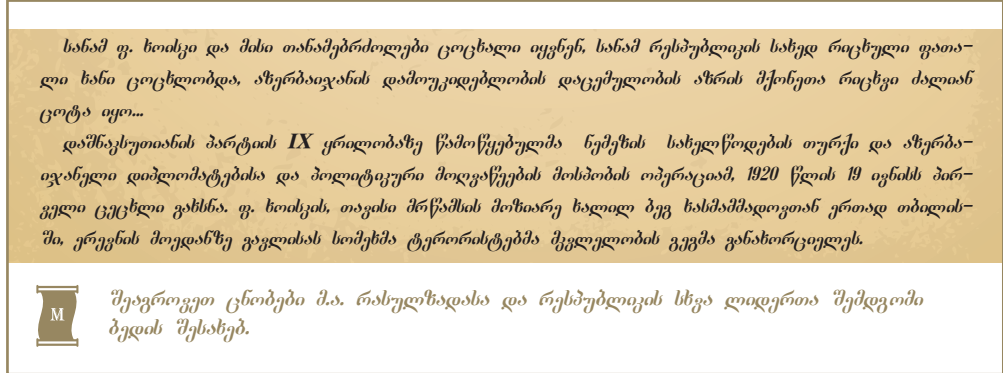 სანამ ფ. ხოისკი და მისი თანამებრძოლები ცოცხალი იყვნენ, სანამ რესპუბლიკის სახედ რიცხული ფათა–
ლი ხანი ცოცხლობდა, აზერბაიჯანის დამოუკიდებლობის დაცემულობის აზრის მქონეთა რიცხვი ძალიან
ცოტა იყო...
დაშნაკსუთიანის პარტიის IX ყრილობაზე წამოწყებულმა ნემეზის სახელწოდების თურქი და აზერბა–
იჯანელი დიპლომატებისა და პოლიტიკური მოღვაწეების მოსპობის ოპერაციამ, 1920 წლის 19 ივნისს პირ–
ველი ცეცხლი გახსნა. ფ. ხოისკის, თავისი მრწამსის მოზიარე ხალილ ბეგ ხასმამმადოვთან ერთად თბილის–
ში, ერევნის მოედანზე გავლისას სომეხმა ტერორისტებმა მკვლელობის გეგმა განახორციელეს.
M
შეაგროვეთ ცნობები მ.ა. რასულზადასა და რესპუბლიკის სხვა ლიდერთა შემდგომი
ბედის შესახებ.